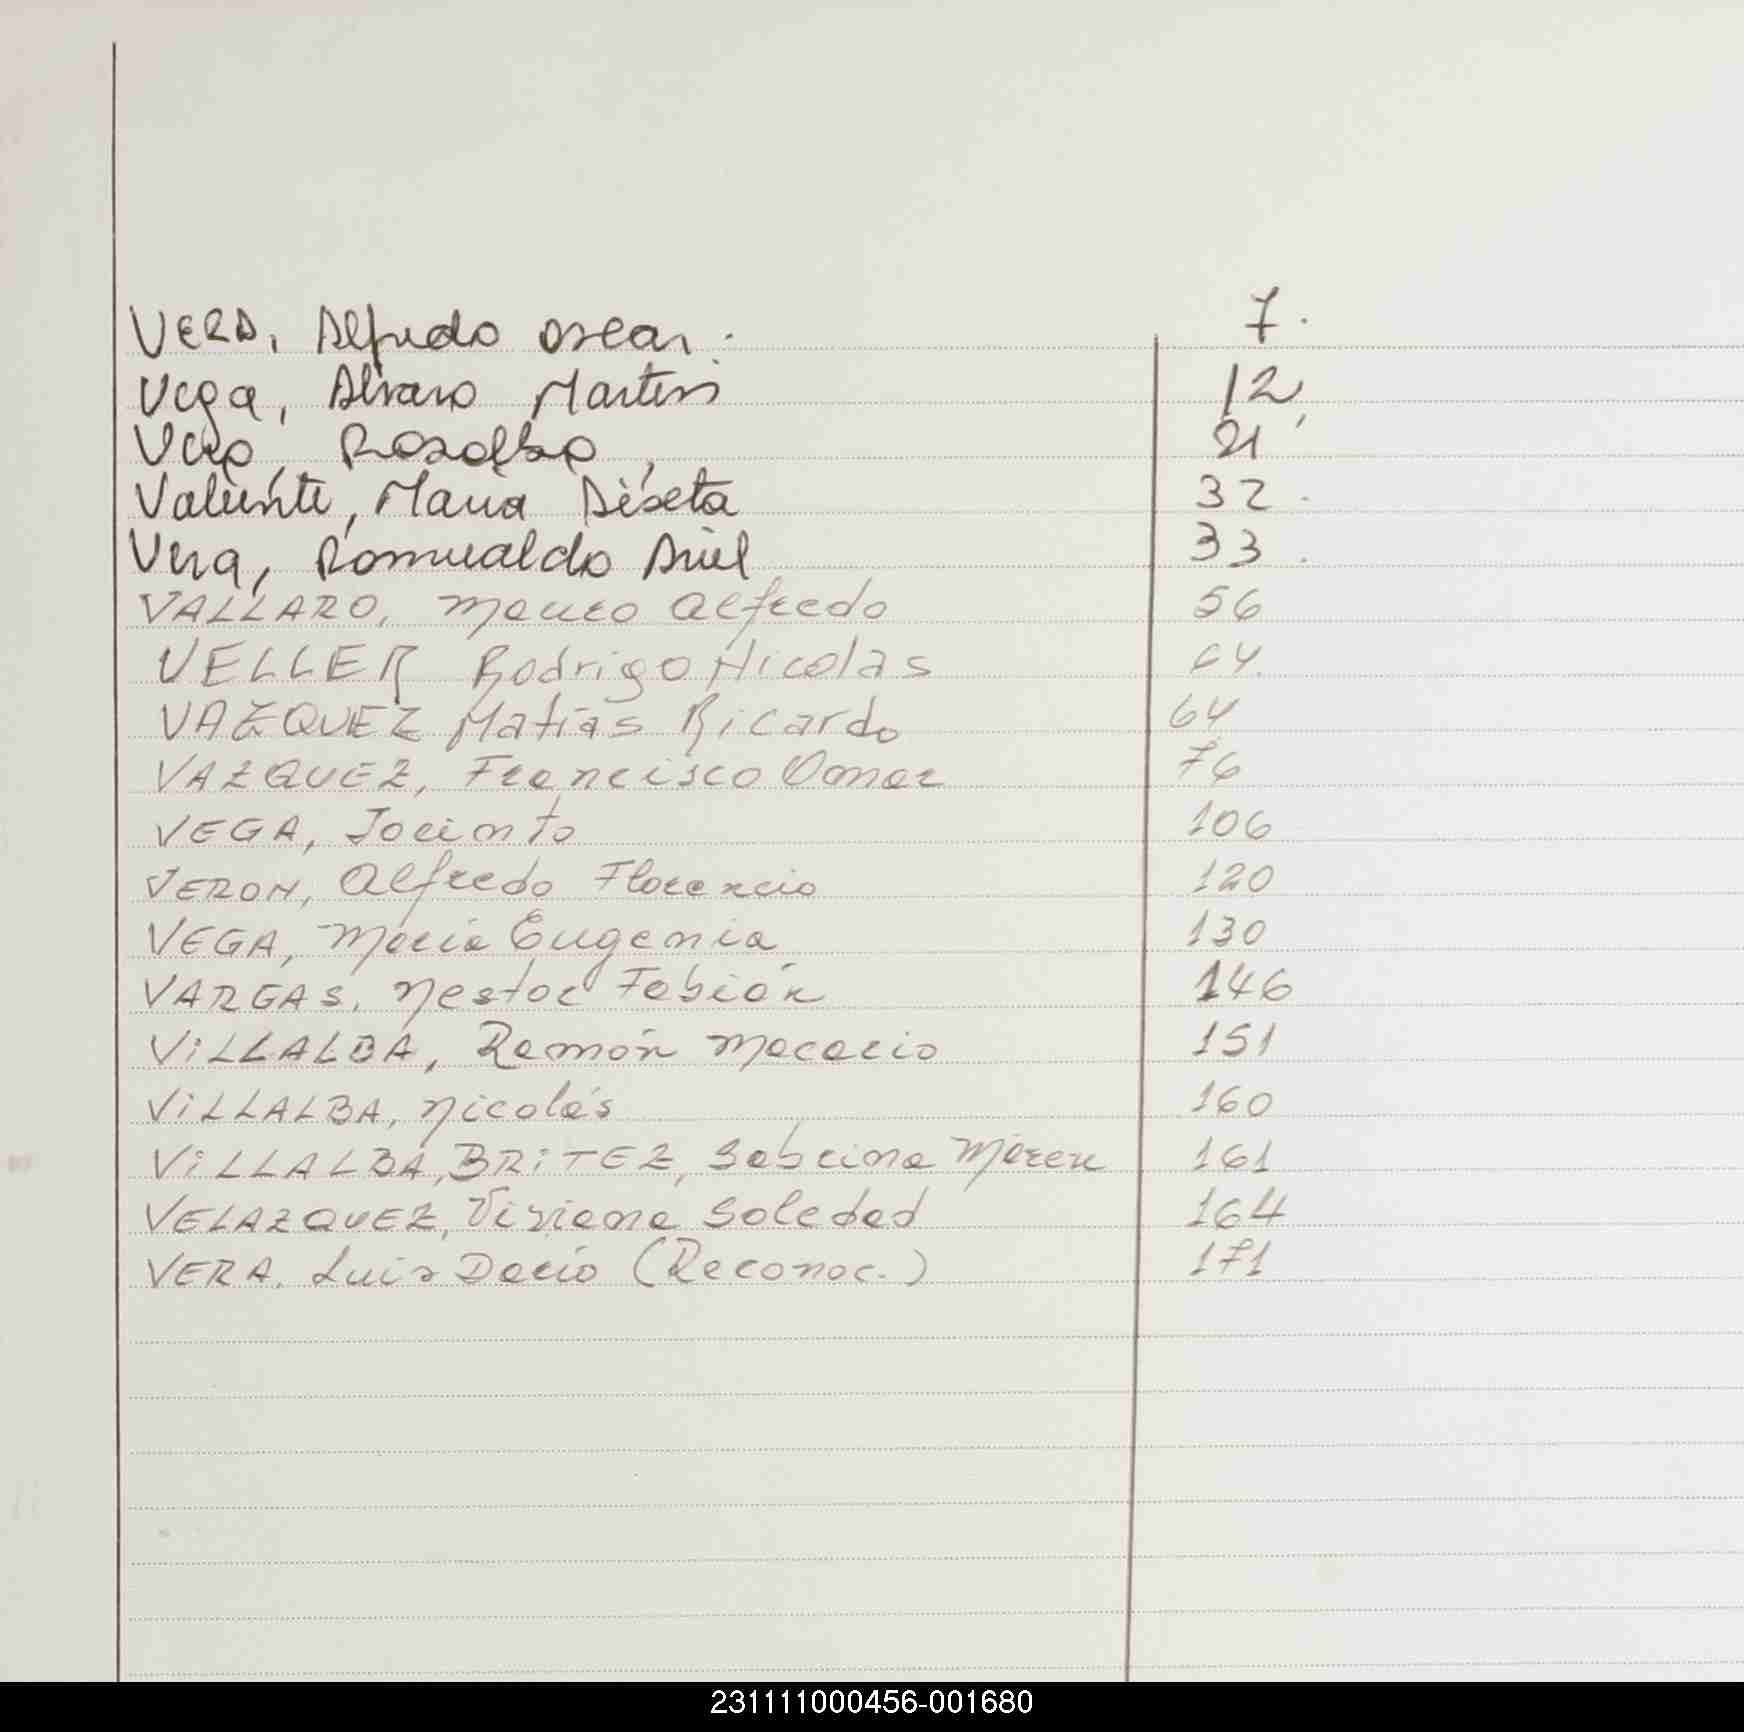 VERA, Alfredo Oscar. 7.
Vega, Alvaro Martin 12,
Vera, Rosalba, 21
Valiente, Maria Liseta 32.
Vera, Romualdo Ariel 33.
VALLARO, Mauro Alfredo 56
VELLER Rodrigo Nicolas 64.
VAZQUEZ Matias Ricardo 64
VAZQUEZ, Francisco Omar 76
VEGA, Jacinto 106
VERON, Alfredo Florencio 120
VEGA, Maria Eugenia 130
VARGAS, Nestor Fabián 146
ViLLALBA, Ramón Macario 151
ViLLALBA, Nicolás 160
ViLLALBA, BRiTEZ, Sabrina Maren 161
VELAZQUEZ, Viviana Soledad 164
VERA, Luis Dario (Reconoc.) 171
231111000456-001680